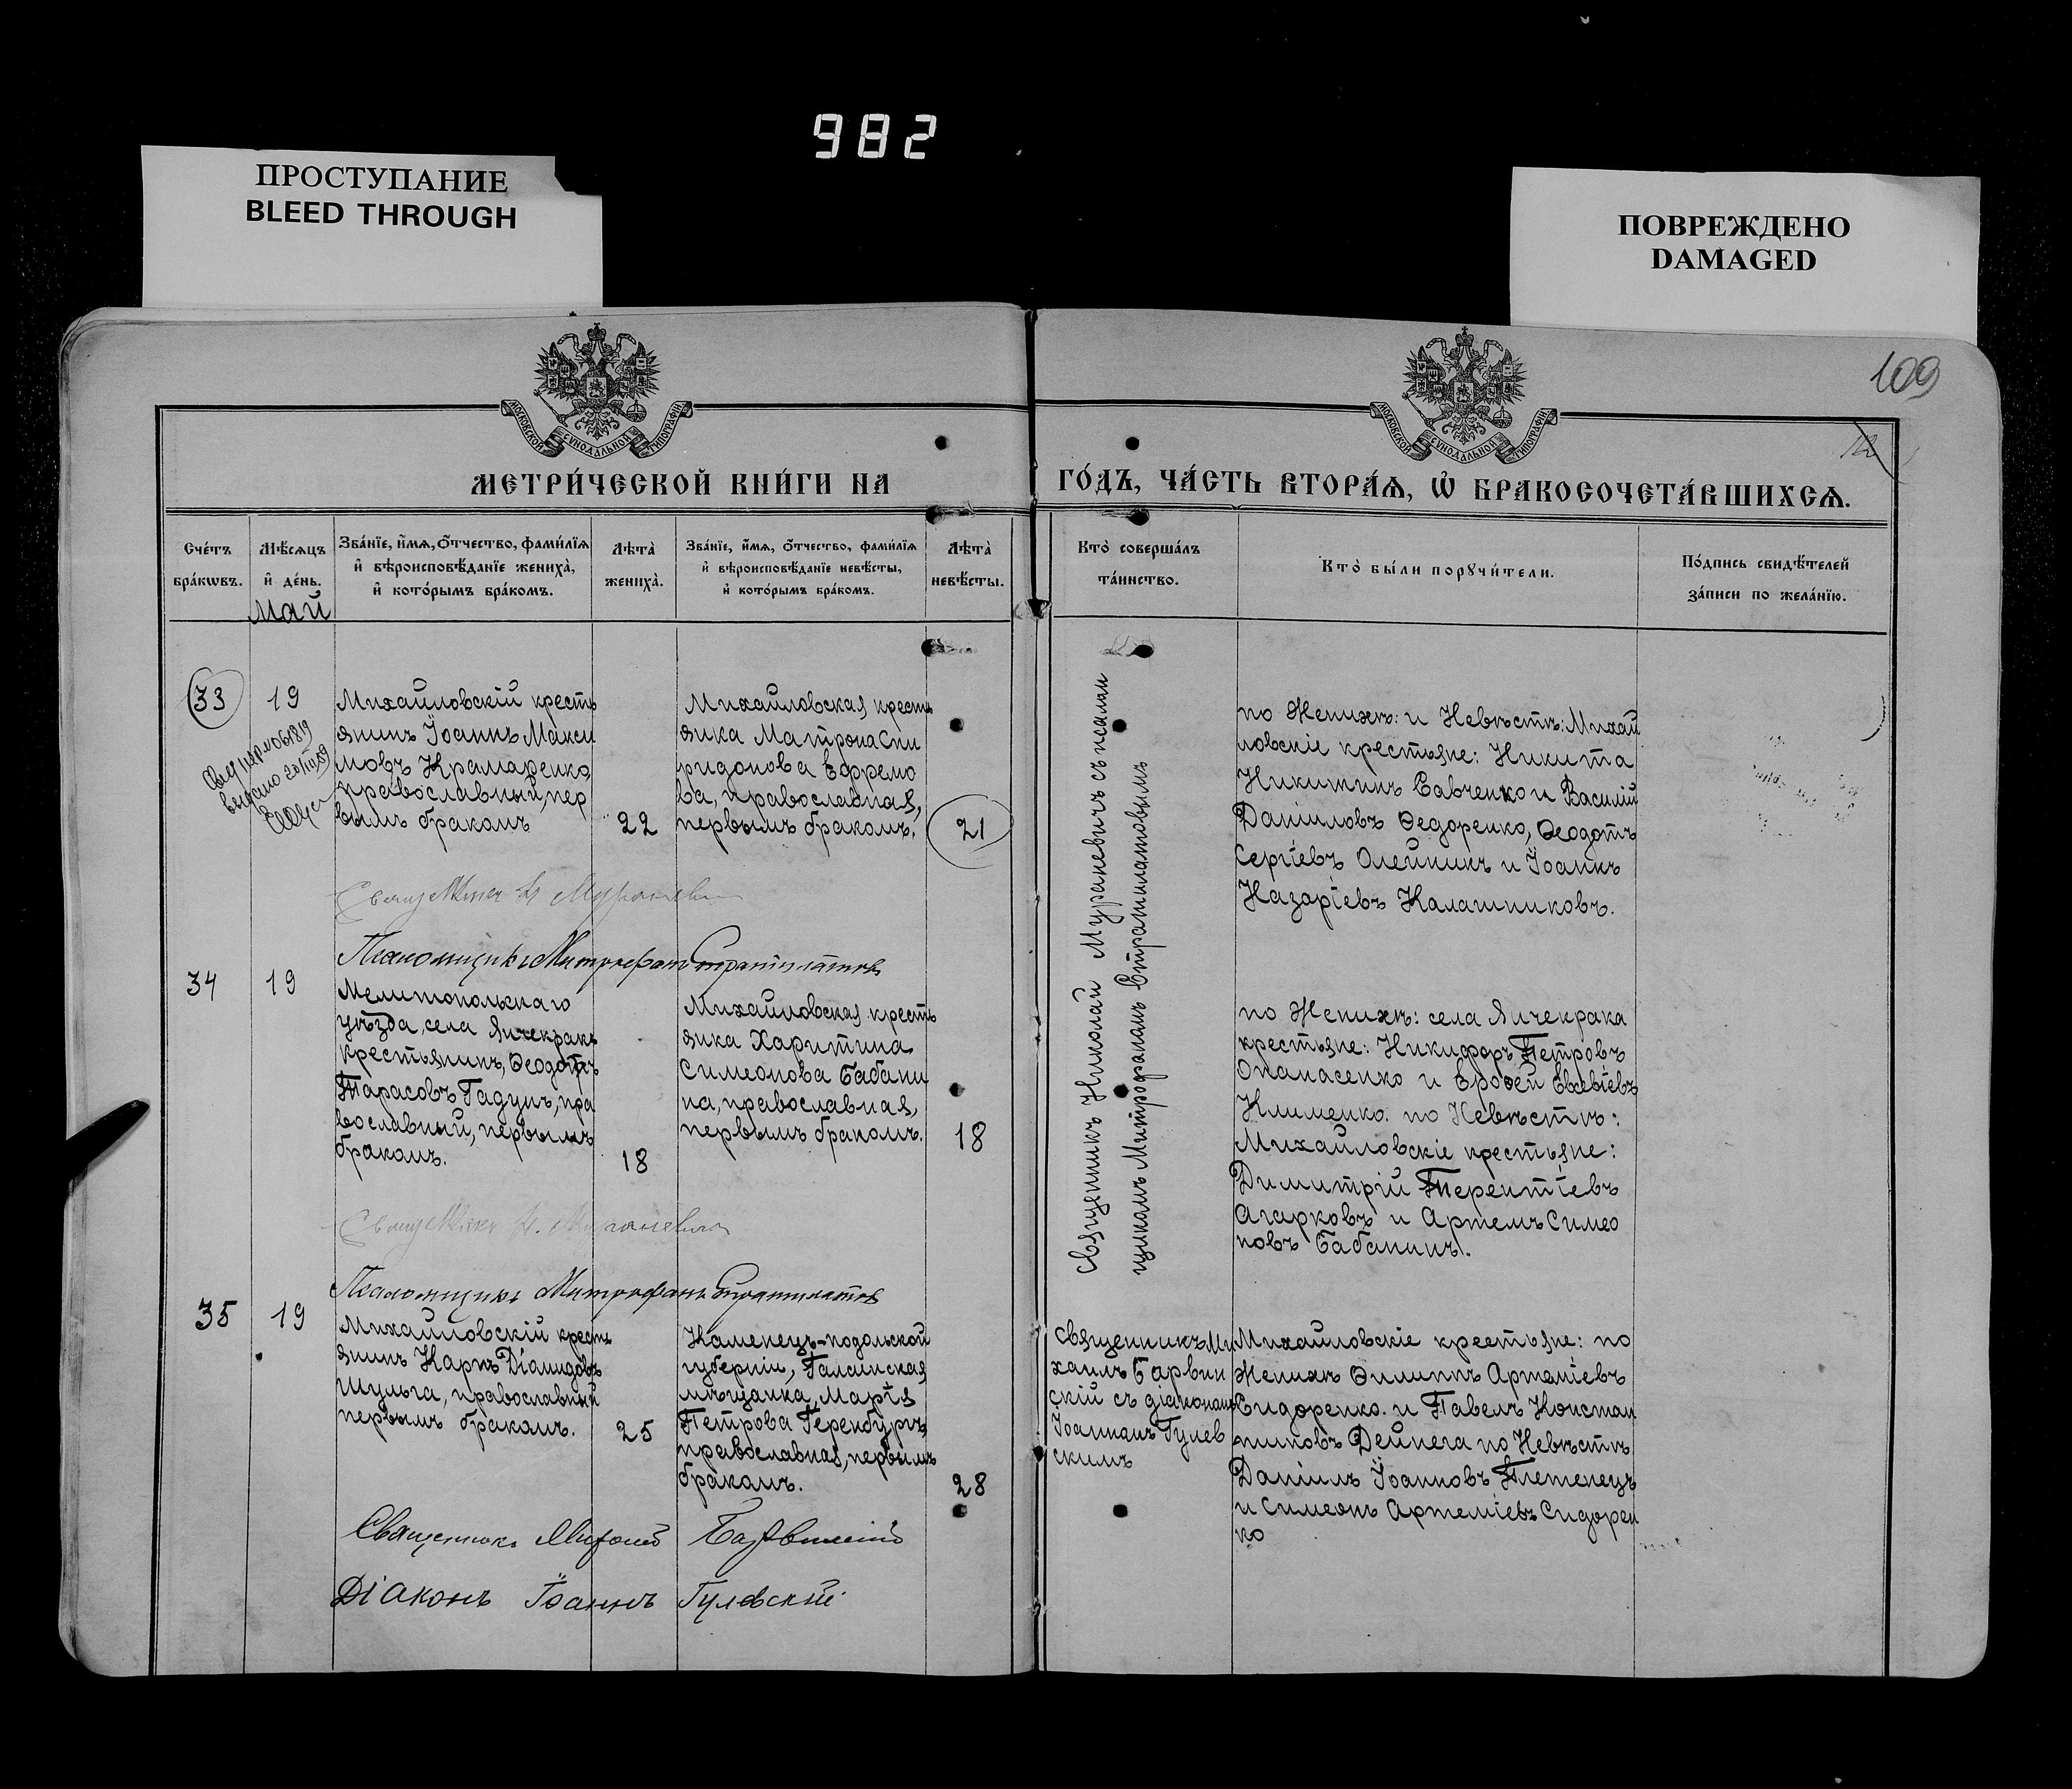 982
ПРОСТУПАНИЕ
BLEED THROUGH
ПОВРЕЖДЕНО
DAMAGED
109
12
МОСКОВСКОЙ СѴНОДАЛЬНОЙ ТИПОГРАФІИ
МОСКОВСКОЙ СѴНОДАЛЬНОЙ ТИПОГРАФІИ
МЕТРИ́ЧЕСКОЙ КНИ́ГИ НА
ГО́ДЪ, ЧА́СТЬ ВТОРА́Ѧ, Ѽ БРАКОСОЧЕТА́ВШИХСѦ.
Сче́тъ
бра́кѡвъ.
Мѣ́сѧцъ
и҆ де́нь.
Май
Зва́нїе, и҆́мѧ, ѻ҆́тчество, фами́лїѧ
и҆ вѣроисповѣ́данїе жениха̀,
и҆ кото́рымъ бра́комъ.
Лѣта̀
жениха̀.
Зва́нїе, и҆́мѧ, ѻ҆́тчество, фами́лїѧ
и҆ вѣроисповѣ́данїе невѣ́сты,
и҆ кото́рымъ бра́комъ.
Лѣта̀
невѣ́сты.
Кто̀ соверша́лъ
та́инство.
Кто̀ бы́ли порꙋчи́тели.
По́дпись свидѣ́телей
за́писи по жела́нїю.
33
19
Михайловскій кресть
янинъ Іоаннъ Макси
мовъ Крамаренко,
православный, пер
вымъ бракомъ
22
Михайловская кресть
янка Матрона Спи
ридонова Ефремо
ва, православная,
первымъ бракомъ.
21
Священникъ Николай Мураневичъ съ псалом
щикомъ Митрофаномъ Стратилатовымъ
по Женихѣ: и Невѣстѣ: Михай
ловскіе крестьяне: Никита
Никитинъ Савченко и Василій
Даніиловъ Ѳедоренко, Ѳеодотъ
Сергіевъ Олейникъ и Іоаннъ
Назаріевъ Калашниковъ.
Священникъ Н Мураневич
Псаломщикъ Митрофанъ Стратилатовъ
34
19
Мелитопольскаго
уѣзда, села Янчекрака
крестьянинъ, Ѳеодотъ
Тарасовъ Гадунъ, пра
вославный, первымъ
бракомъ.
18
Михайловская кресть
янка Харитина
Симеонова Бабани
на, православная,
первымъ бракомъ.
18
по Женихѣ: села Янчекрака
крестьяне: Никифоръ Петровъ
Опанасенко и Ерофей Евсевіевъ
Клименко. по Невѣстѣ:
Михайловскіе крестьяне:
Димитрій Терентіевъ
Агарковъ и Артемъ Симео
новъ Бабанинъ.
Священникъ Н. Мураневич
Псаломщикъ Митрофанъ Стратилатов
35
19
Михайловскій кресть
янинъ Карпъ Діомидовъ
Шульга, православный
первымъ бракомъ.
25
Каменецъ-подольской
губерніи,
мѣщанка, Марія
Петрова Геренбургъ,
православная, первымъ
бракомъ.
28
священникъ Ми
хаилъ Барвин
скій съ діакономъ
Іоанномъ Гулев
скимъ
Михайловскіе крестьяне: по
Женихѣ Филиппъ Артеміевъ
Сидоренко. и Павелъ Констан
тиновъ Дейнега по Невѣстѣ
Даніилъ Іоанновъ Плетенецъ
и Симеонъ Артеміевъ Сидорен
ко
Священникъ Михаилъ Барвинскій
Діаконъ Іоаннъ Гулевскій